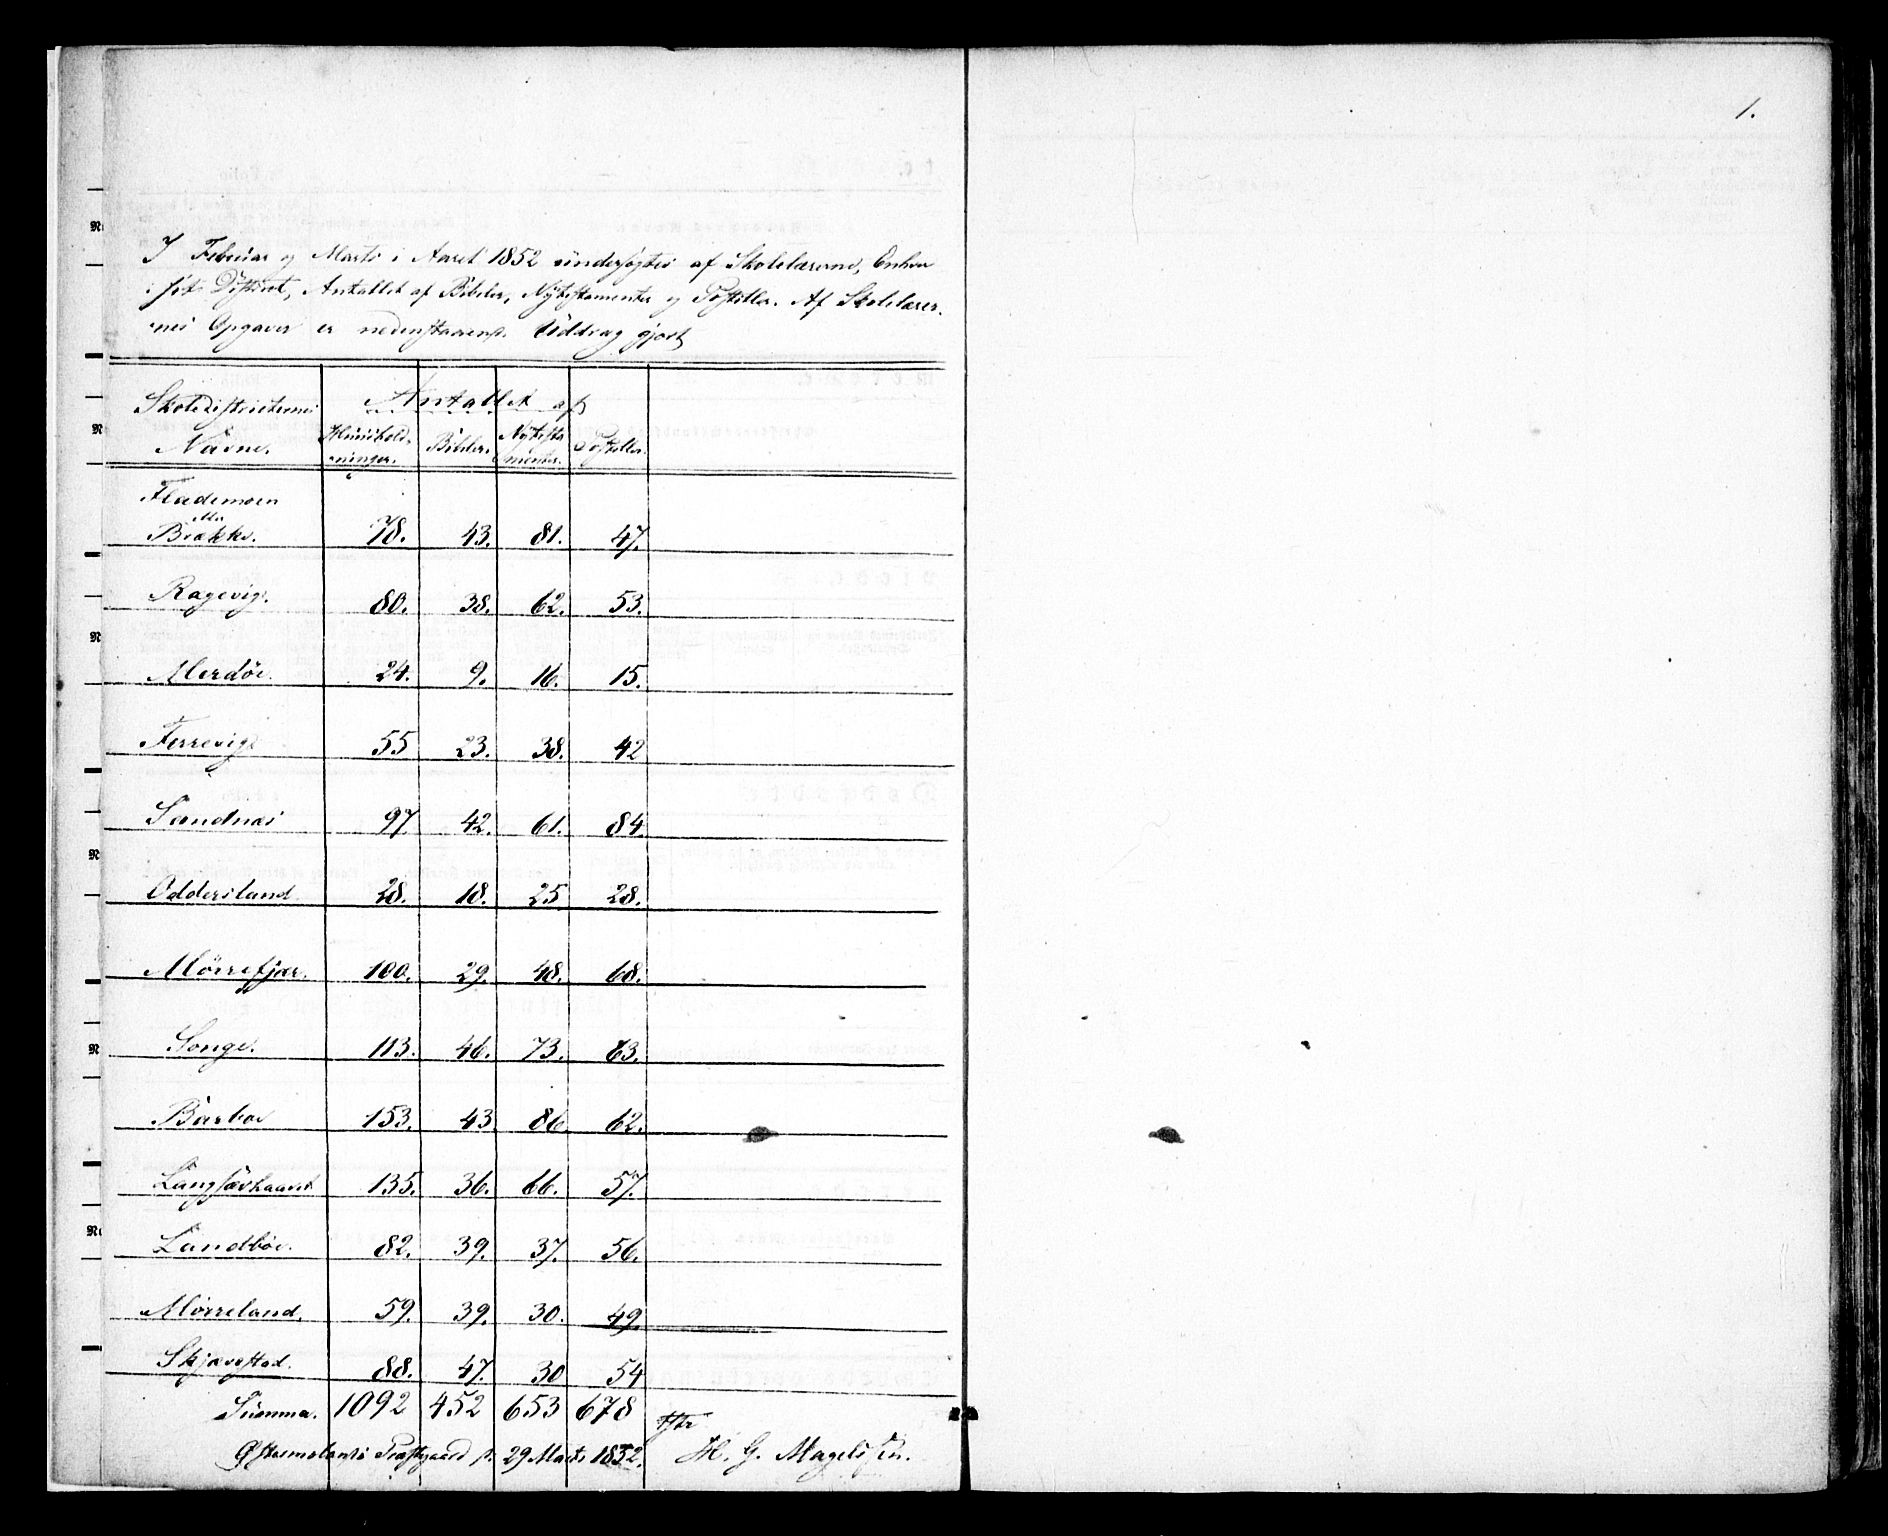 1.
I Februar og Marts i Aaret 1852 undersøgtes af Skolelærerne, Enhver
i sit District, Antallet af Bibeler, Nytestamenter og Postiller. Af Skolelærer-
nes Opgaver er nedenstaaende Uddrag gjort
Skoledistricternes Navne. Antallet af
Huushold- ninger. Bibeler. Nytesta- menter. Postiller.
Flademoen
Brække. 78. 43. 81. 47.
Ragevig. 80. 38. 62. 53.
Merdøe. 24. 9. 16. 15.
Ferrevig 55 23. 38. 42
Sandnæs 97 42. 61. 84.
Oddersland 28. 18. 25 28.
Mørrefjær. 100. 29. 48. 68.
Songe. 113. 46. 73. 63.
Barboe 153. 43 86. 62.
Langsævhaavet 135. 36. 66. 57.
Landbøe. 82. 39. 37. 56.
Mørreland. 59. 39. 30. 49.
Skjævestad. 88. 47. 30 54
Summa. 1092 452 653 678
Østremolands Præstegaard d. 29 Marts 1852. H. G. Magelssen.